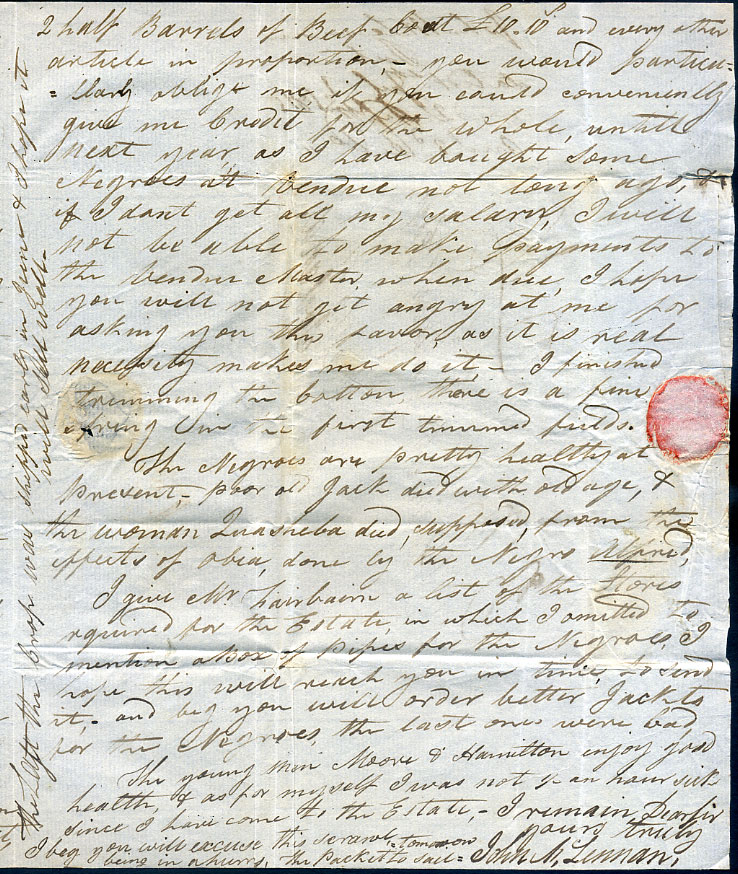 2 half Barrels of Beef - Co at £10.10 and every other
article in proportion, - you would particu-
=larly oblige me if you could conveniently
give me Credit for the whole, untill
next year, as I have bought some
Negroes at Vendue not long ago, &
if I dont get all my salary, I will
not be able to make payments to
the Vendue Master, when due, I hope
you will not get angry at me for
asking you this favor, as it is real
necessity makes me do it - I finished
trimming the Cotton, there is a fine
spring in the first trimmed fields.
The Negroes are pretty healthy at
Present, - poor old Jack died with old age, &
the woman Quasheba died, supposed, from the
effects of obia, done by the Negro Alfred,
I give Mr Fairbairn a list of the Stores
rquired for the Estate, in which I omitted to
mention a Box of Pipes for the Negroes, I
hope this will reach you in time, to send
it, - and beg you will order better Jackets
for the Negroes, the last ones were bad,
The young men Moore & Hamilton enjoy good
health, & as for myself I was not an hour sick
since I have come to the Estate, - I remain Dear Sir
Yours truly
John McLennan,
I beg you will excuse this scrawl
being in a hurry, the Packett to sail = tomorrow
The Left the Crop was shipped early in June & I hope it
will sell well -